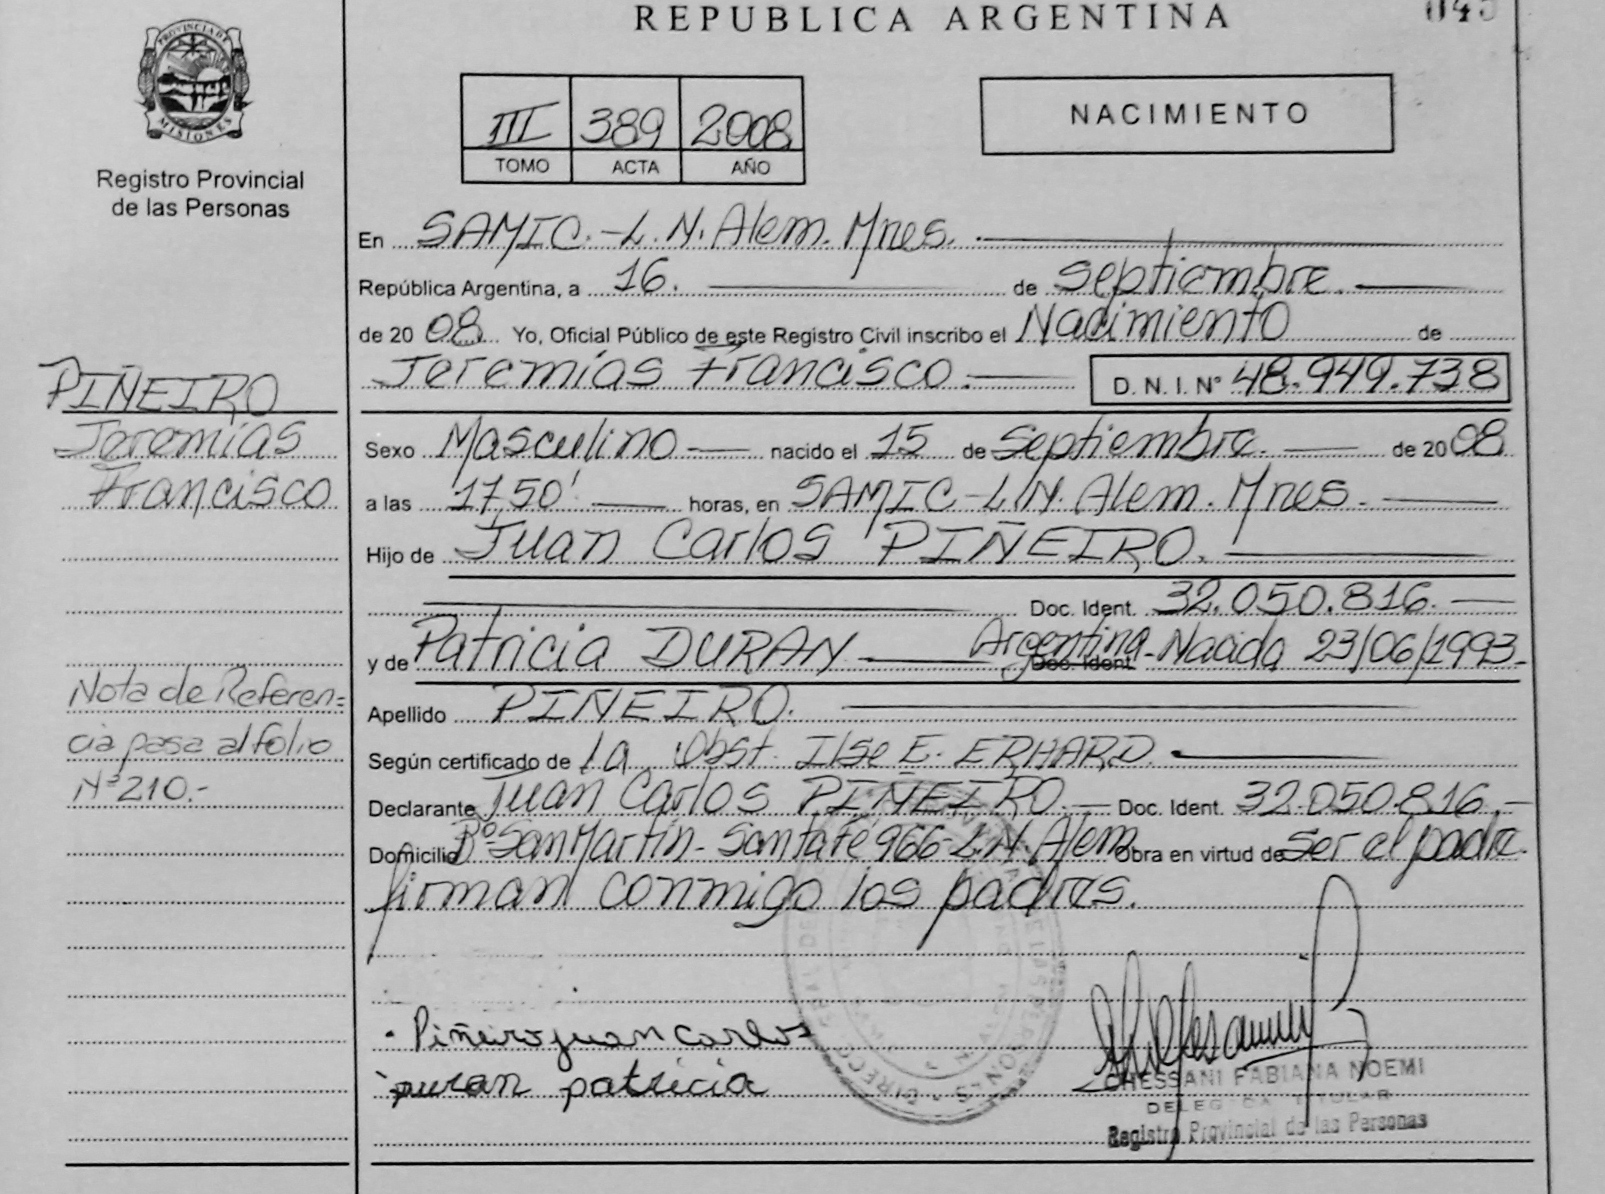 REPUBLICA ARGENTINA
045
PROVINCIA DE
MISIONES
Registro Provincial
de las Personas
III 389 2008
TOMO ACTA AÑO
NACIMIENTO
En SAMIC.-L.N.Alem.Mnes.
República Argentina, a 16. de septiembre.
de 20 08. Yo, Oficial Público de este Registro Civil inscribo el Nacimiento de
Jeremías Francisco. D. N. I. Nº 48.949.738
PIÑEIRO
Jeremías
Francisco
Sexo Masculino nacido el 15 de Septiembre. de 20 08
a las 17,50' horas, en SAMIC-L.N.Alem.Mnes.
Hijo de Juan Carlos PIÑEIRO.
Doc. Ident. 32.050.816.
y de Patricia DURAN Argentina-Nacida 23/06/1993.
Doc. Ident.
Nota de Referen=
cia pasa al folio
Nº210.-
Apellido PIÑEIRO.
Según certificado de la Obst. Ilse E. ERHARD.
Declarante Juan Carlos PIÑEIRO. Doc. Ident. 32.050.816.-
Domicilio Bº San Martín-Santa Fé 966-L.N.Alem Obra en virtud de ser el padre.
firman conmigo los padres.
Piñeiro juan Carlos
Duran patricia
CHESSANI FABIANA NOEMI
DELEGADA TITULAR
Registro Provincial de las Personas